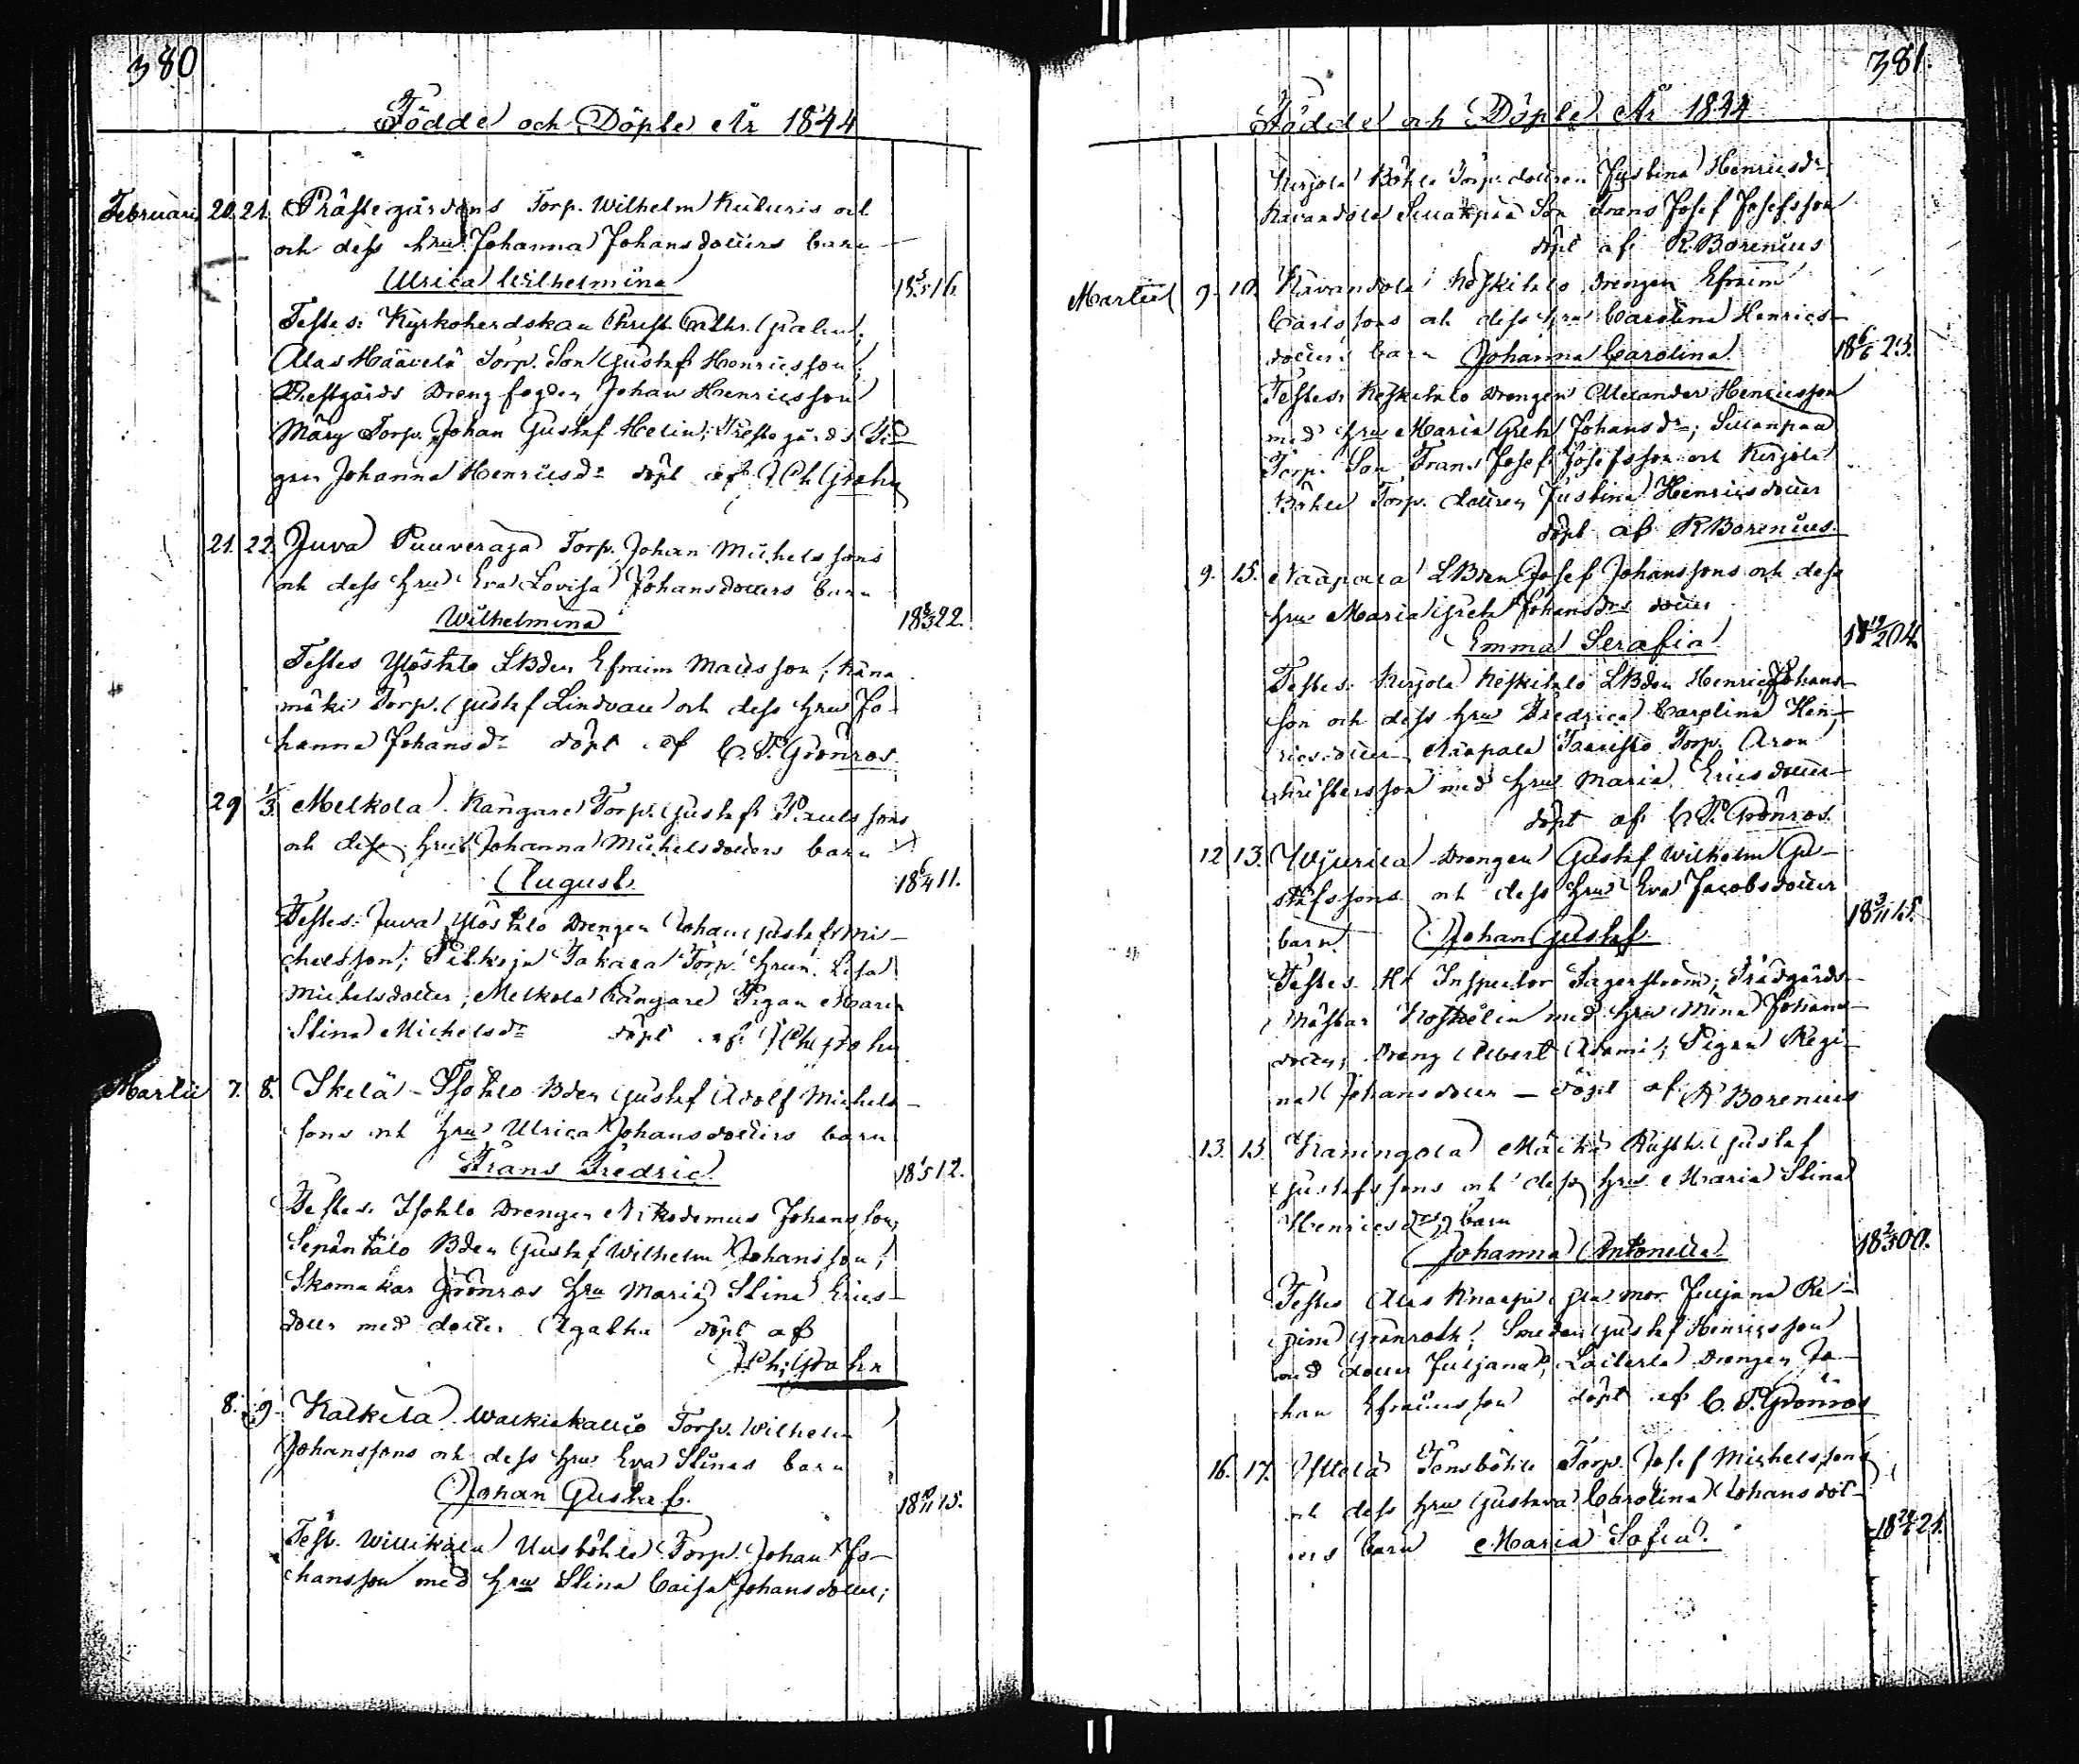 380
Födde och Döpte År 1844
Februari 20. 21. Prästegårdens Torp. Wilhelm
och dess hru Johanna Johansdotters barn
Ulrica Wilhelmina
Testes: Kyrkoherdskan Christ. Cathr.
Alas Häävelä Torp. Son Gustaf Henricsson;
Prestgårds Drengfogden Johan Henricsson
Torp. Johan Gustaf Helin; Prestegårds Pi-
gan Johanna Henricsdr döpt af J Ch Grahn
21. 22. Juva Puuveraja Torp. Johan Michelssons
och dess hru Eva Lovisa Johansdotters barn
Wilhelmina 18 22.
Testes Ylöstalo LBden Efraim Matsson;
mäki Torp. Gustaf Lindvall och dess hru Jo-
hanna Johansdr döpt af C. P. Grönros
29 1/3. Melkola Kangare Torp. Gustaf Paulssons
och dess hru Johanna Michelsdotters barn
August 18 6/4 11.
Testes: Juva Ylöstalo Drengen Johan Gustaf Mi-
chelsson; Torp. hrun Lisa
Michelsdotter; Melkola Kangare Pigan Maria
Stina Michelsdr döpt af J Ch Grahn
Martii 7. 8. Skelä-Isotalo Bden Gustaf Adolf Michels-
sons och hru Ulrica Johansdotters barn
Frans Fredric 18 12.
Testes: Isotalo Drengen Nikodemus Johansson;
Sepäntalo Bden Gustaf Wilhelm Johansson;
Skomakar Grönros hru Maria Stina Erics-
dotter med dotter Agatha döpt af
J Ch: Grahn
8. 9. Kalkila Walkiakallio Torp. Wilhelm
Johanssons och dess hru Eva Stinas barn
Johan Gustaf 18 15.
Test. Willikala Uusböhle Torp. Johan Jo-
hansson med hru Stina Caisa Johansdotter;
381.
Födde och Döpte År 1844
Kirjola Böhle Torp. dottren Justina Henricsdr
Son Frans Josef Josefsson
döpt af R. Borenius
Martii 9. 10. Kavandola Keskitalo Drengen Efraim
Carlssons och dess hru Carolina Henrics-
dotters barn Johanna Carolina 18 6/6 23.
Testes: Keskitalo Drengen Alexander Henricsson
med hru Maria Greta Johansdr; Suuanpää
Torp. Son Frans Josef Josefsson och Kirjola
Böhle Torp. dottren Justina Henricsdotter
döpt af R Borenius.
9. 15. Naapala LBden Josef Johanssons och dess
hru Maria Greta Johansdrs dotter
Emma Serafia 18 12/2 04.
Testes: Kirjola Keskitalo LBden Henric Johans-
son och dess hru Fredrica Carolina Hen-
ricsdotter, Naapala Torp. Aron
Christersson med hru Maria Ericsdotter
döpt af C. P. Grönros
12 13. Drengen Gustaf Wilhelm Gu-
stafssons och dess hru Eva Jacobsdotter
barn Johan Gustaf 18 3/11 15.
Testes. Hr Inspector Fagerström; Trädgårds-
mästar Koskelin med hru Mina Johans-
dotter; Dreng Albert Adami; Pigan Regi-
na Johansdotter — döpt af R Borenius
13. 15. Kaningola Rusth. Gustaf
Gustafssons och dess hru Maria Stina
Henricsdrs barn
Johanna Antonetta 18 00.
Testes Alas Knaapi Juljana Re-
gina Grönroth; Smeden Gustaf Henricsson
med dotter Juljana; Drengen Jo-
han Efraimsson döpt af C. P. Grönros
16. 17. Torp. Josef Michelssons
och dess hru Gustava Carolina Johansdot-
ters barn Maria Sofia. 18 21.